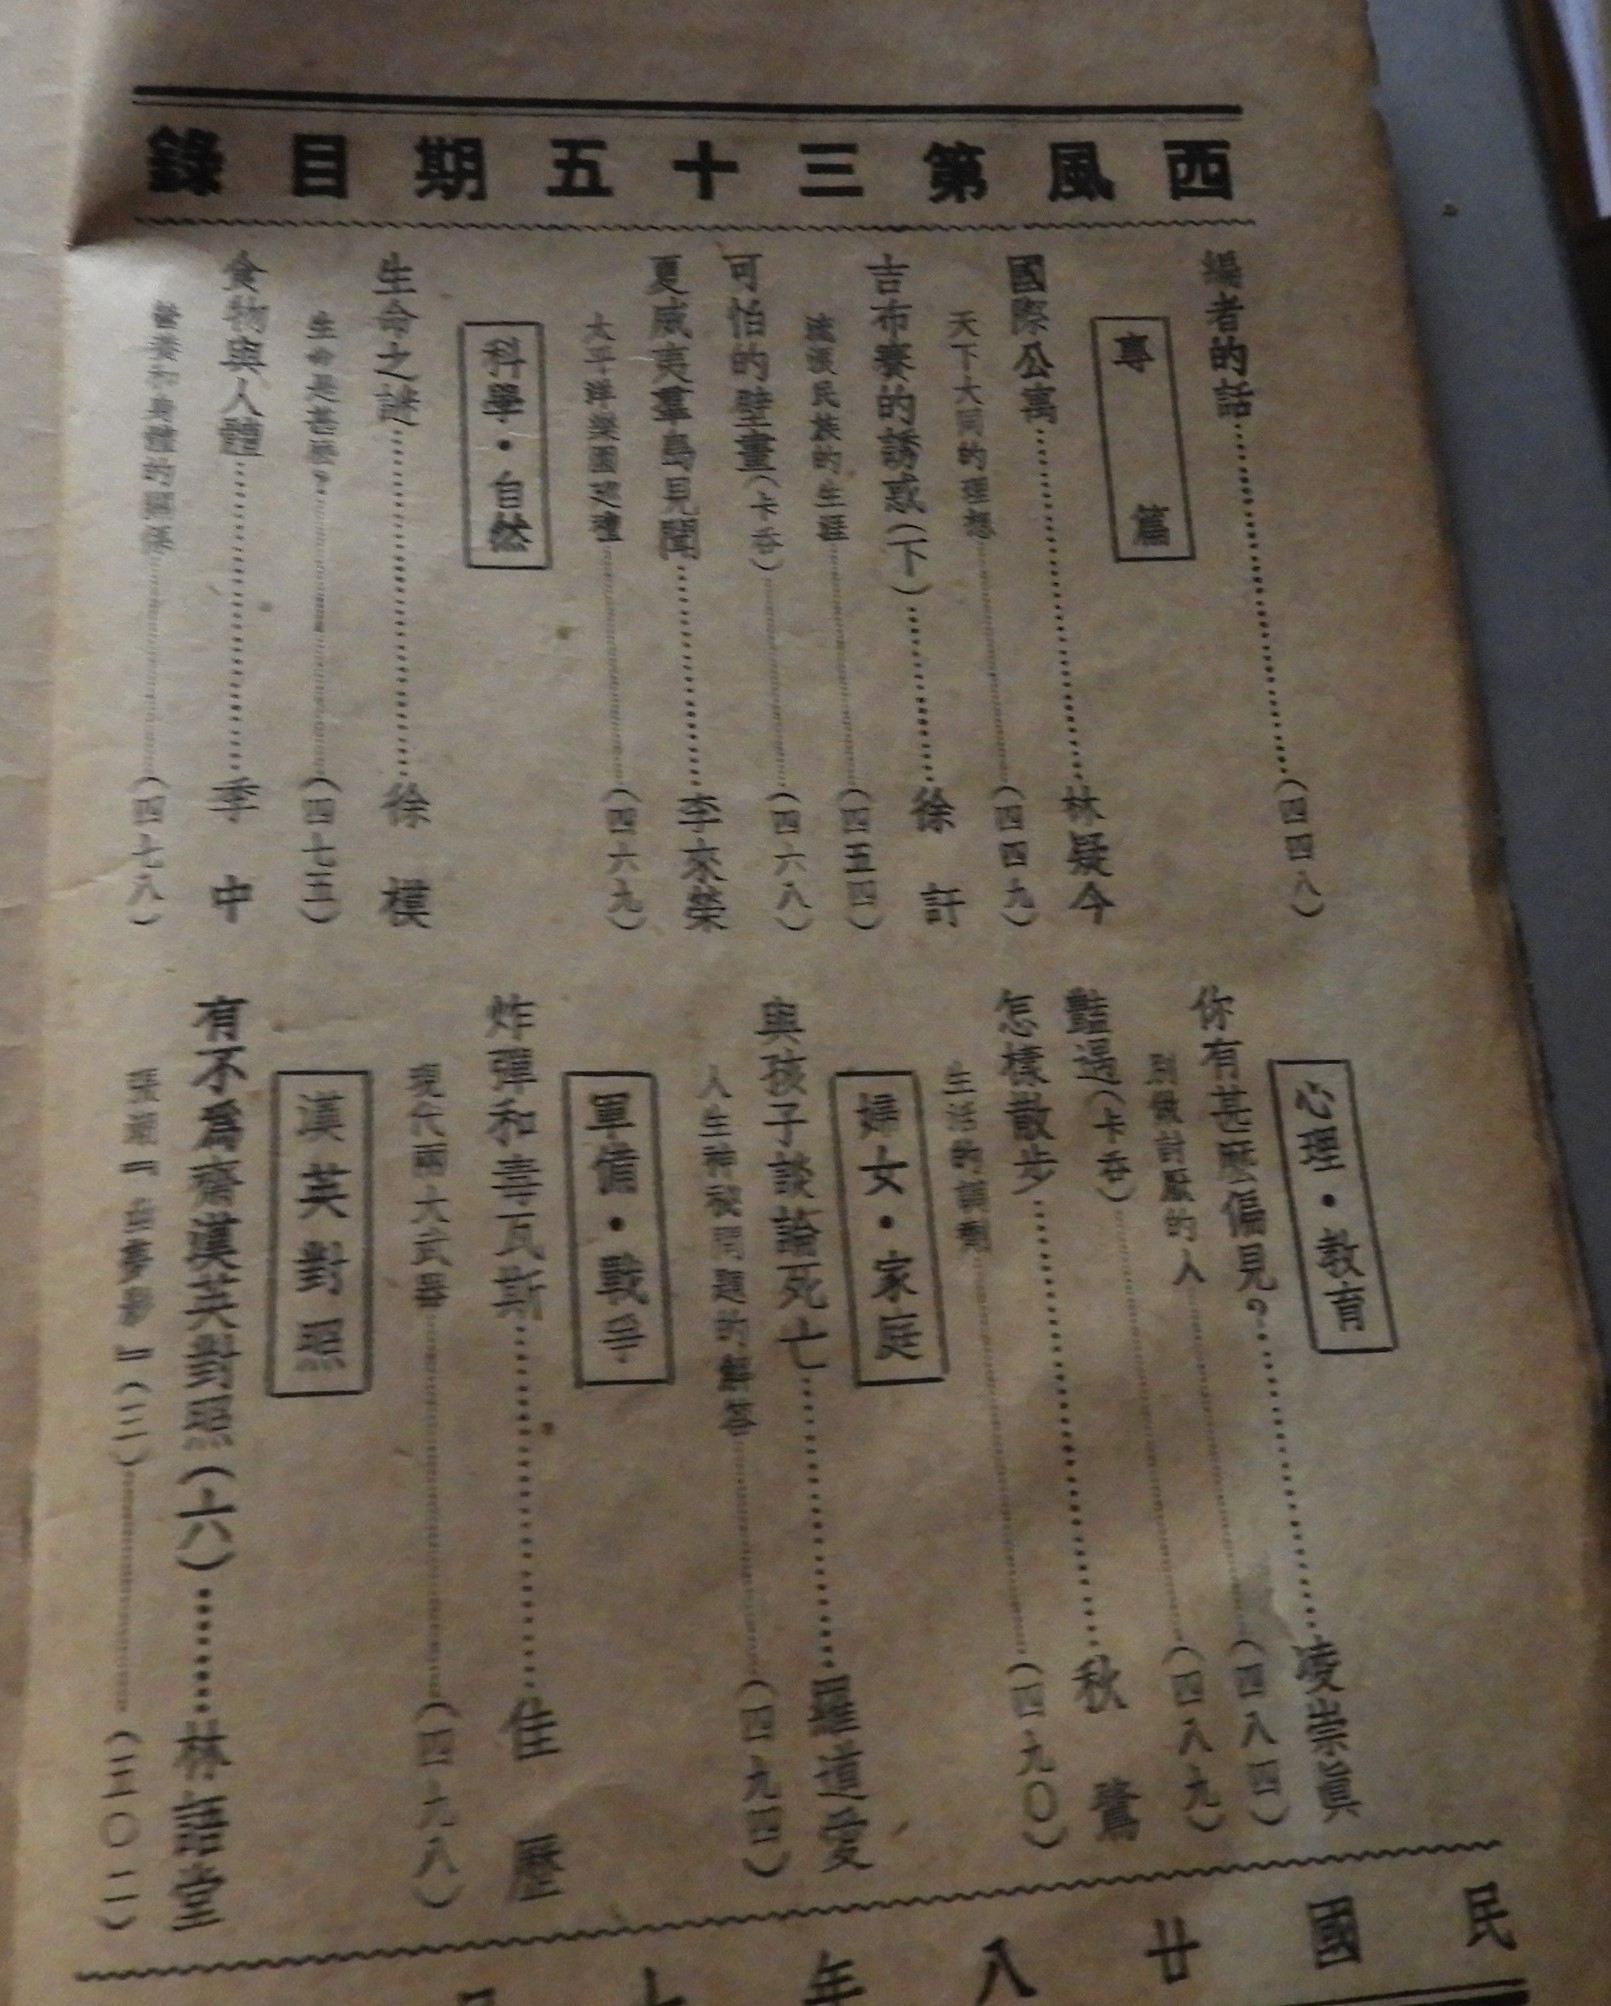 西風第三十五期目錄
編者的話……(四四八)
專篇
國際公寓……林疑今
天下大同的理想……(四四九)
吉布賽的誘惑(下)……徐訏
流浪民族的生涯……(四五四)
可怕的壁畫(卡吞)……(四六八)
夏威夷羣島見聞……李來榮
太平洋樂園巡禮……(四六九)
科學・自然
生命之謎……徐模
生命是甚麼?……(四七五)
食物與人體……季中
營養和身體的關係……(四七八)
心理・教育
你有甚麽偏見?……凌崇眞
別做討厭的人……(四八四)
豔遇(卡吞)……(四八九)
怎樣散步……秋鶩
生活的調劑……(四九〇)
婦女・家庭
與孩子談論死亡……羅道愛
人生神祕問題的解答……(四九四)
軍備・戰爭
炸彈和毒瓦斯……佳歷
現代兩大武器……(四九八)
漢英對照
有不爲齋漢英對照(六)……林語堂
張潮『幽夢影』(三)……(五〇二)
民國廿八年七月